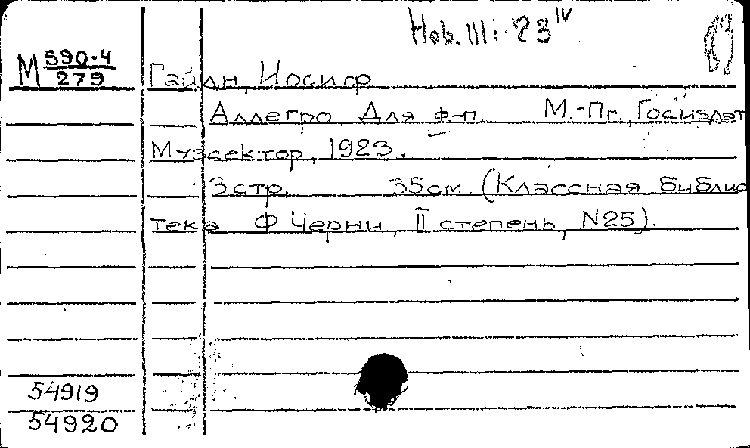 Нов. III: 23 IV
М 590-4
279
Гайдн, Иосиф
Аллегро Для ф-п. М.-Пг., Госиздат
Музсектор, 1923.
3стр. 35см. (Классная библио
тека Ф Черни, II степень, N25).
54919
54920